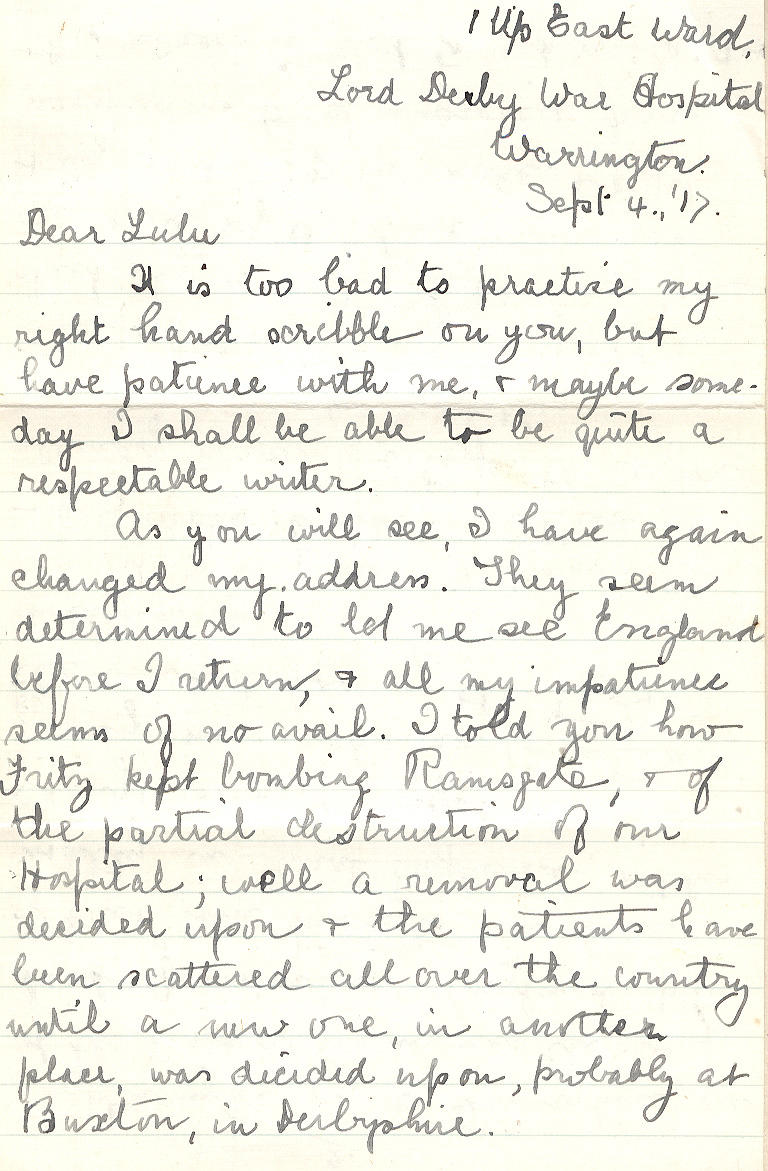 1 Up East Ward,
Lord Derby War Hospital
Warrington.
Sept 4.,'17.
Dear Lulu
It is too bad to practise my
right hand scribble on you, but
have patience with me, & maybe some-
day I shall be able to be quite a
respectable writer.
As you will see, I have again
changed my address. They seem
determined to let me see England
before I return, & all my impatience
seems of no avail. I told you how
Fritz kept bombing Ramsgate, & of
the partial destruction of our
Hospital; well a removal was
decided upon & the patients have
been scattered all over the country
until a new one, in another
place, was decided upon, probably at
Buxton, in Derbyshire.